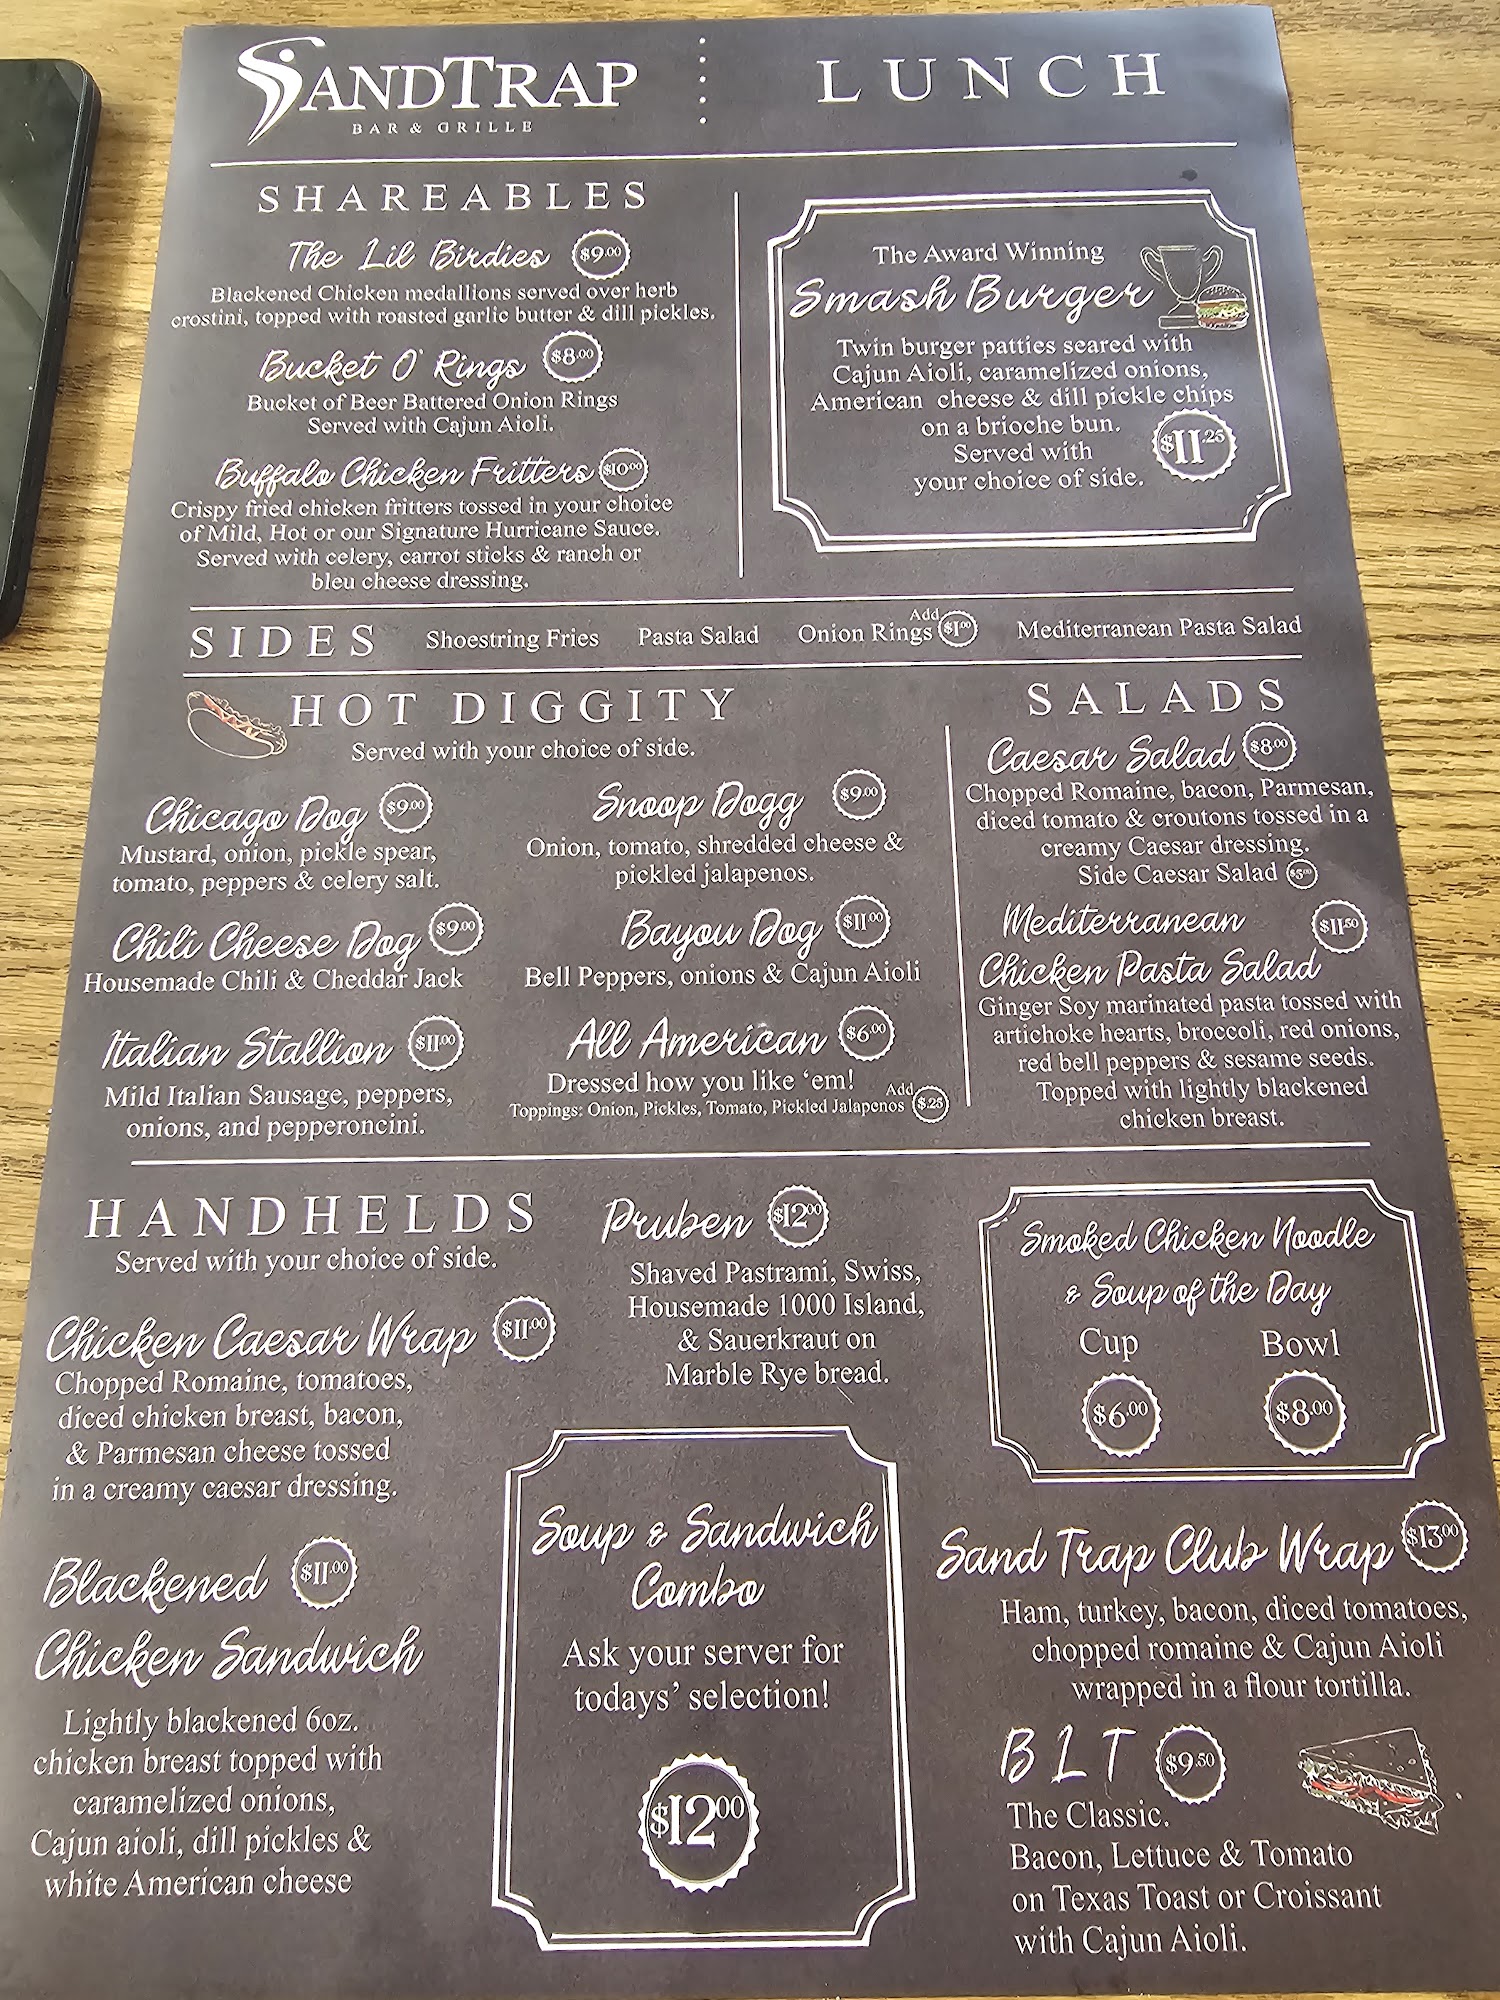 SANDTRAP
BAR & GRILLE
LUNCH
SHAREABLES
The Lil Birdies $9.00
Blackened Chicken medallions served over herb
crostini, topped with roasted garlic butter & dill pickles.
Bucket O' Rings $8.00
Bucket of Beer Battered Onion Rings
Served with Cajun Aioli.
Buffalo Chicken Fritters $10.00
Crispy fried chicken fritters tossed in your choice
of Mild, Hot or our Signature Hurricane Sauce.
Served with celery, carrot sticks & ranch or
bleu cheese dressing.
The Award Winning
Smash Burger
Twin burger patties seared with
Cajun Aioli, caramelized onions,
American cheese & dill pickle chips
on a brioche bun.
Served with
your choice of side.
$11.25
SIDES
Shoestring Fries
Pasta Salad
Onion Rings Add $1.00
Mediterranean Pasta Salad
HOT DIGGITY
Served with your choice of side.
Chicago Dog $9.00
Mustard, onion, pickle spear,
tomato, peppers & celery salt.
Chili Cheese Dog $9.00
Housemade Chili & Cheddar Jack
Italian Stallion $11.00
Mild Italian Sausage, peppers,
onions, and pepperoncini.
Snoop Dogg $9.00
Onion, tomato, shredded cheese &
pickled jalapenos.
Bayou Dog $11.00
Bell Peppers, onions & Cajun Aioli
All American $6.00
Dressed how you like ‘em!
Toppings: Onion, Pickles, Tomato, Pickled Jalapenos Add $.25
SALADS
Caesar Salad $8.00
Chopped Romaine, bacon, Parmesan,
diced tomato & croutons tossed in a
creamy Caesar dressing.
Side Caesar Salad $5.00
Mediterranean $11.50
Chicken Pasta Salad
Ginger Soy marinated pasta tossed with
artichoke hearts, broccoli, red onions,
red bell peppers & sesame seeds.
Topped with lightly blackened
chicken breast.
HANDHELDS
Served with your choice of side.
Chicken Caesar Wrap $11.00
Chopped Romaine, tomatoes,
diced chicken breast, bacon,
& Parmesan cheese tossed
in a creamy caesar dressing.
Blackened $11.00
Chicken Sandwich
Lightly blackened 6oz.
chicken breast topped with
caramelized onions,
Cajun aioli, dill pickles &
white American cheese
Pruben $12.00
Shaved Pastrami, Swiss,
Housemade 1000 Island,
& Sauerkraut on
Marble Rye bread.
Soup & Sandwich
Combo
Ask your server for
todays’ selection!
$12.00
Smoked Chicken Noodle
& Soup of the Day
Cup Bowl
$6.00 $8.00
Sand Trap Club Wrap $13.00
Ham, turkey, bacon, diced tomatoes,
chopped romaine & Cajun Aioli
wrapped in a flour tortilla.
BLT $9.50
The Classic.
Bacon, Lettuce & Tomato
on Texas Toast or Croissant
with Cajun Aioli.